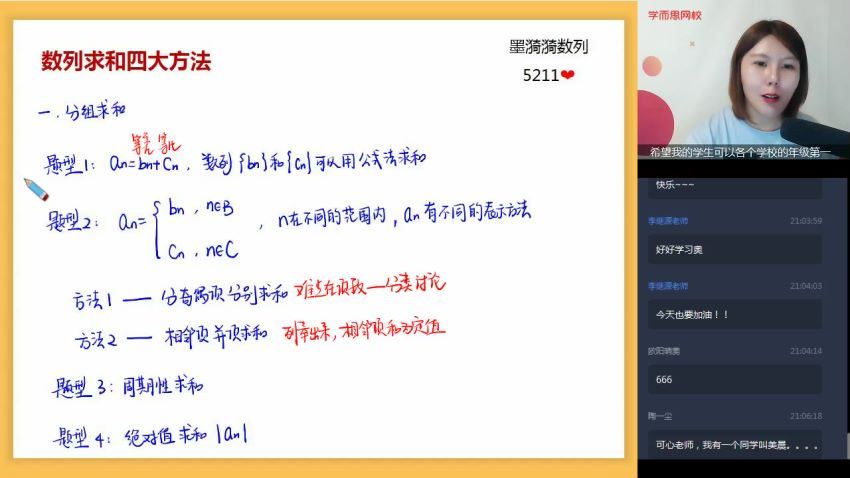 数列求和四大方法
墨漪漪数列
5211❤
一.分组求和
等差 等比
题型1: an=bn+Cn , 数列{bn}和{cn}可以用公式法求和
题型2: an={ bn , n∈B
Cn , n∈C
, n在不同的范围内, an有不同的表示方法
方法1 — 分奇偶项分别求和 难点在项数—分类讨论
方法2 — 相邻项并项求和 列举出来, 相邻项和为定值
题型 3: 周期性求和
题型 4: 绝对值求和 |an|
学而思网校
希望我的学生可以各个学校的年级第一
快乐~~~
李继源老师 21:03:59
好好学习奥
李继源老师 21:04:03
今天也要加油！！
欧阳晴奥 21:04:14
666
陶一尘 21:06:18
可心老师，我有一个同学叫美晨。。。。